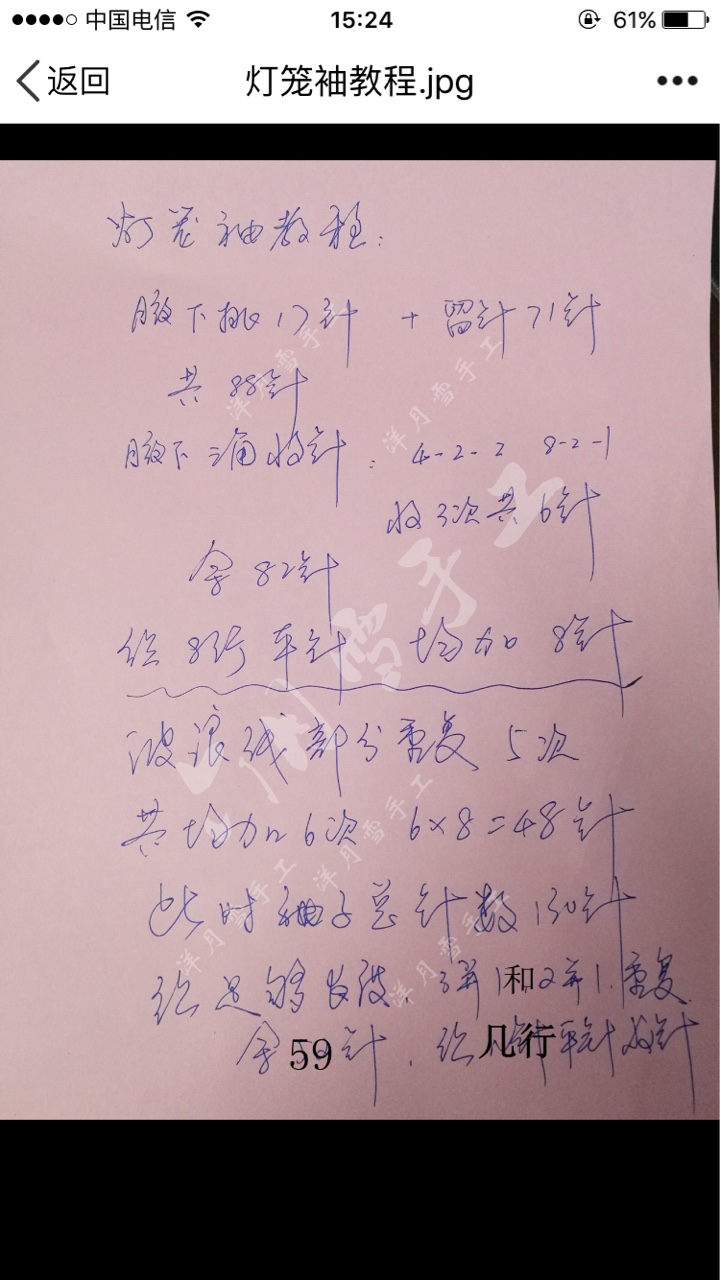 中国电信 15:24 61%
返回 灯笼袖教程.jpg
灯笼袖教程:
腋下挑17针 + 留针71针
共88针
腋下三角收针: 4-2-2 8-2-1
收3次共6针
余82针
织8行平针 均加8针
波浪线部分重复5次
共均加6次 6×8=48针
此时袖子总针数130针
织足够长度. 3并1和2并1.重复
余59针. 织几行平针收针
洋月雪手工
洋月雪手工
洋月雪手工
洋月雪手工
洋月雪手工
洋月雪手工